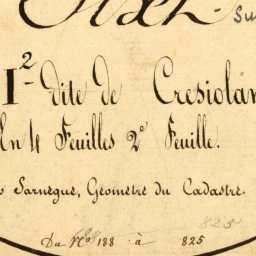 I2 dite de Cresiolan
En 4 Feuilles 2e Feuille.
Sarnègue, Géomètre du Cadastre.
825
Du No 188 à 825